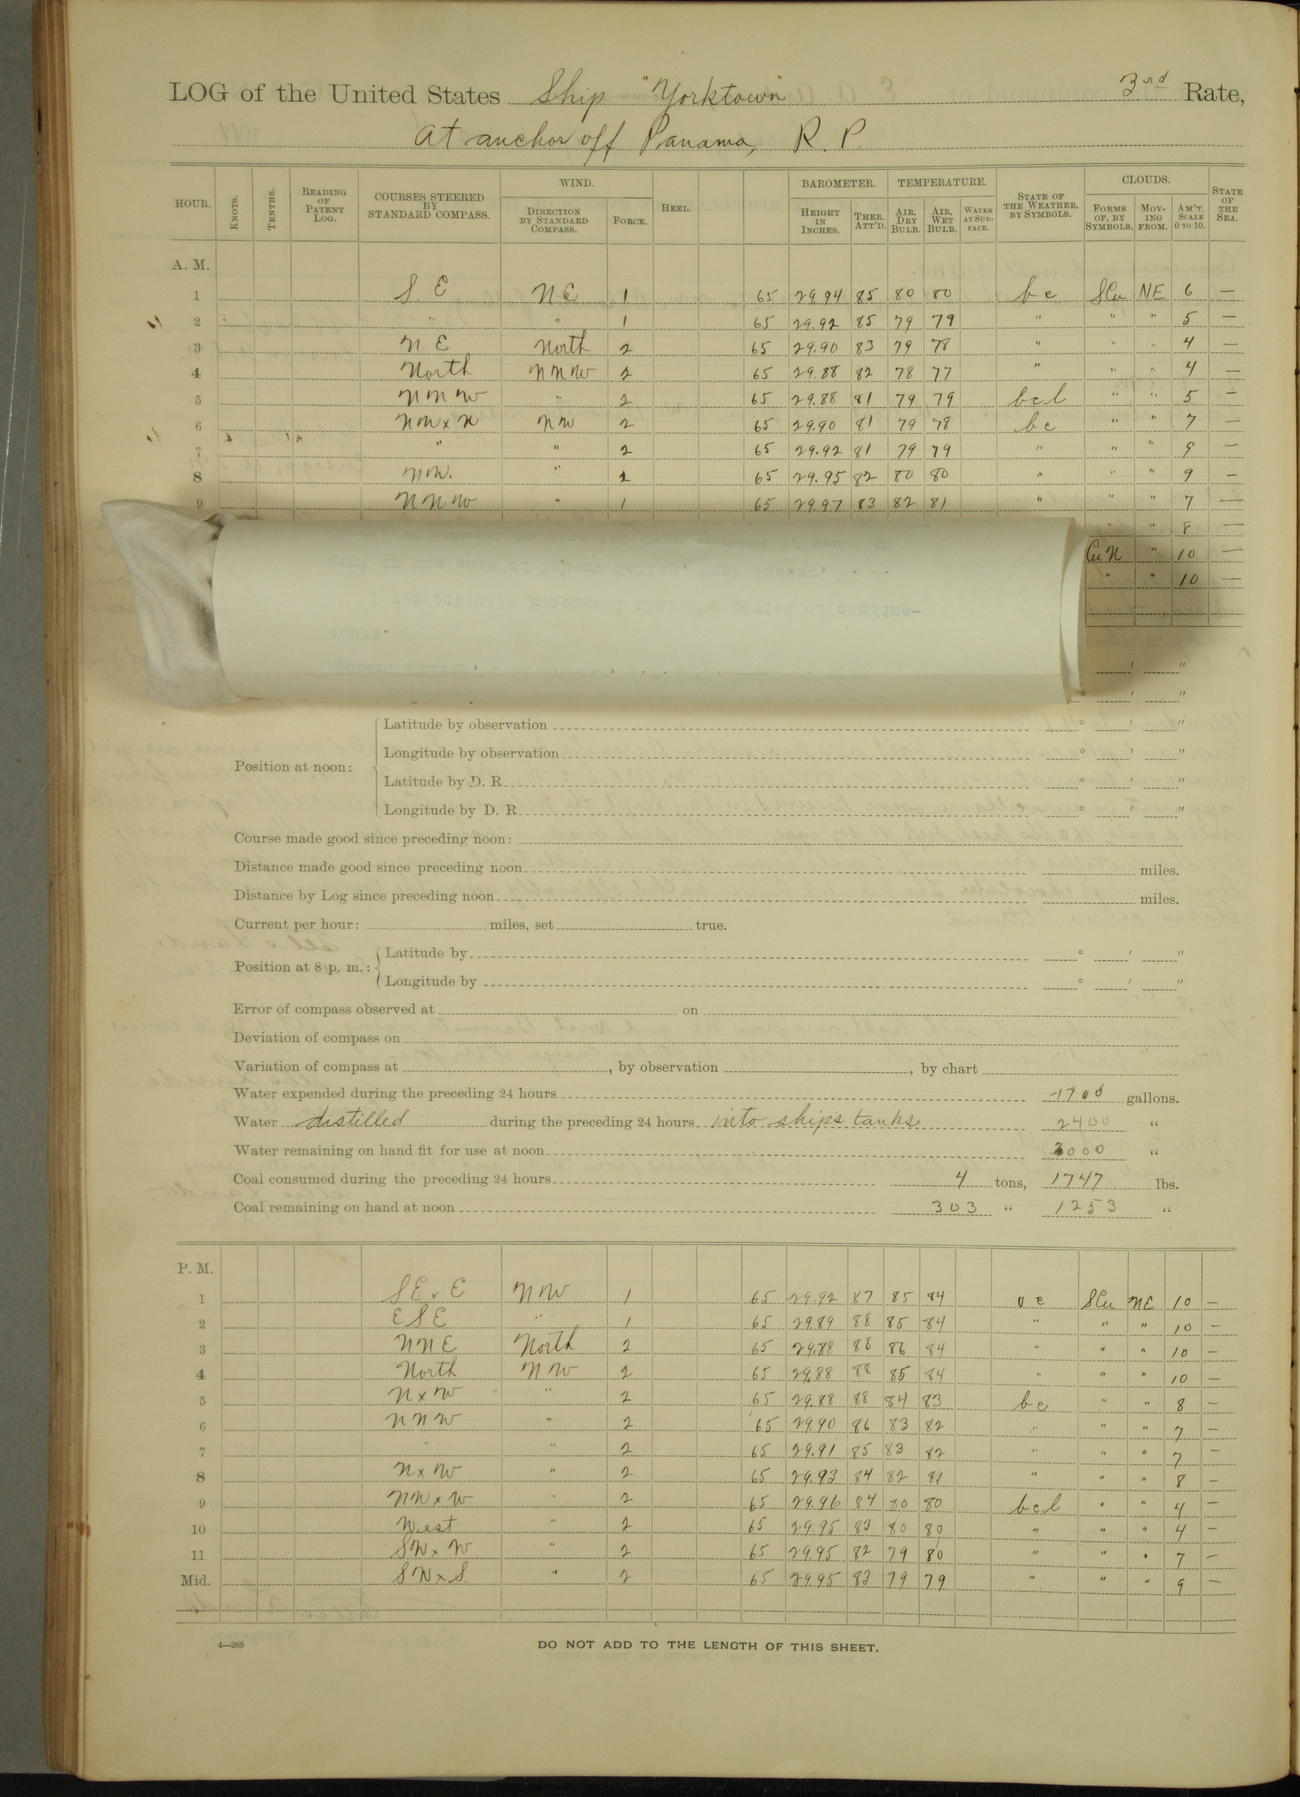 LOG of the United States Ship "Yorktown" 3rd Rate,
At anchor off Panama, R. P.
HOUR. KNOTS. TENTHS. READING OF PATENT LOG. COURSES STEERED BY STANDARD COMPASS. WIND. DIRECTION BY STANDARD COMPASS. FORCE. HEEL. BAROMETER. HEIGHT IN INCHES. THER. ATT'D. TEMPERATURE. AIR, DRY BULB. AIR, WET BULB. WATER AT SURFACE. STATE OF THE WEATHER, BY SYMBOLS. CLOUDS. FORMS OF, BY SYMBOLS. MOVING FROM. AM'T. SCALE 0 TO 10. STATE OF THE SEA.
A. M.
1 S. E NE 1 65 29.94 85 80 80 b c SCu NE 6 —
2 " " 1 65 29.92 85 79 79 " " " 5 —
3 N E North 2 65 29.90 83 79 78 " " " 4 —
4 North NNW 2 65 29.88 82 78 77 " " " 4 —
5 NNW " 2 65 29.88 81 79 79 bcl " " 5 —
6 NW x N NW 2 65 29.90 81 79 78 b c " " 7 —
7 " " 2 65 29.92 81 79 79 " " " 9 —
8 NW. " 1 65 29.95 82 80 80 " " " 9 —
9 NNW " 1 65 29.97 83 82 81 " " " 7 —
" 8 —
CuN " 10 —
" " 10 —
° ' "
Position at noon:
Latitude by observation ° ' "
Longitude by observation ° ' "
Latitude by D. R. ° ' "
Longitude by D. R. ° ' "
Course made good since preceding noon:
Distance made good since preceding noon miles.
Distance by Log since preceding noon miles.
Current per hour: miles, set true.
Position at 8 p. m.:
Latitude by ° ' "
Longitude by ° ' "
Error of compass observed at on
Deviation of compass on
Variation of compass at , by observation , by chart
Water expended during the preceding 24 hours 1700 gallons.
Water distilled during the preceding 24 hours into ships tanks 2400 "
Water remaining on hand fit for use at noon 3000 "
Coal consumed during the preceding 24 hours 4 tons, 1747 lbs.
Coal remaining on hand at noon 303 " 1253 "
P. M.
1 SE x E NW 1 65 29.92 87 85 84 o c SCu NE 10 —
2 ESE " 1 65 29.89 88 85 84 " " " 10 —
3 NNE North 2 65 29.88 88 86 84 " " " 10 —
4 North NW 2 65 29.88 88 85 84 " " " 10 —
5 N x W " 2 65 29.88 88 84 83 b c " " 8 —
6 NNW " 2 65 29.90 86 83 82 " " " 7 —
7 " " 2 65 29.91 85 83 82 " " " 7 —
8 N x W " 2 65 29.93 84 82 81 " " " 8 —
9 NW x W " 2 65 29.96 84 80 80 bcl " " 4 —
10 West " 2 65 29.95 83 80 80 " " " 4 —
11 SW x W " 2 65 29.95 82 79 80 " " " 7 —
Mid. SW x S. " 2 65 29.95 83 79 79 " " " 9 —
4—265
DO NOT ADD TO THE LENGTH OF THIS SHEET.